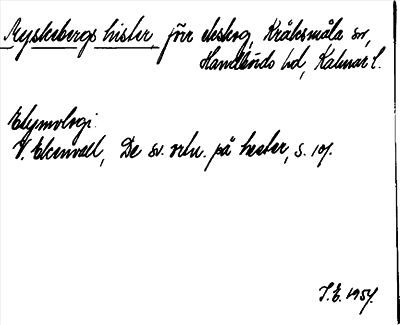 Ryskebergs hister förr ekskog, Kråksmåla sn,
Handbörds hd, Kalmar l.
Etymologi:
V. Ekenvall, De sv. ortn. på hester, s. 107.
S.E. 1957.